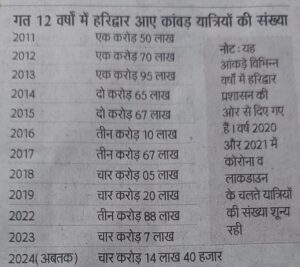 गत 12 वर्षों में हरिद्वार आए कांवड़ यात्रियों की संख्या
2011 एक करोड़ 50 लाख
2012 एक करोड़ 70 लाख
2013 एक करोड़ 95 लाख
2014 दो करोड़ 65 लाख
2015 दो करोड़ 67 लाख
2016 तीन करोड़ 10 लाख
2017 तीन करोड़ 67 लाख
2018 चार करोड़ 05 लाख
2019 चार करोड़ 20 लाख
2022 तीन करोड़ 88 लाख
2023 चार करोड़ 7 लाख
2024(अबतक) चार करोड़ 14 लाख 40 हजार
नोट : यह
आंकड़े विभिन्न
वर्षों में हरिद्वार
प्रशासन की
ओर से दिए गए
हैं। वर्ष 2020
और 2021 में
कोरोना व
लाकडाउन
के चलते यात्रियों
की संख्या शून्य
रही